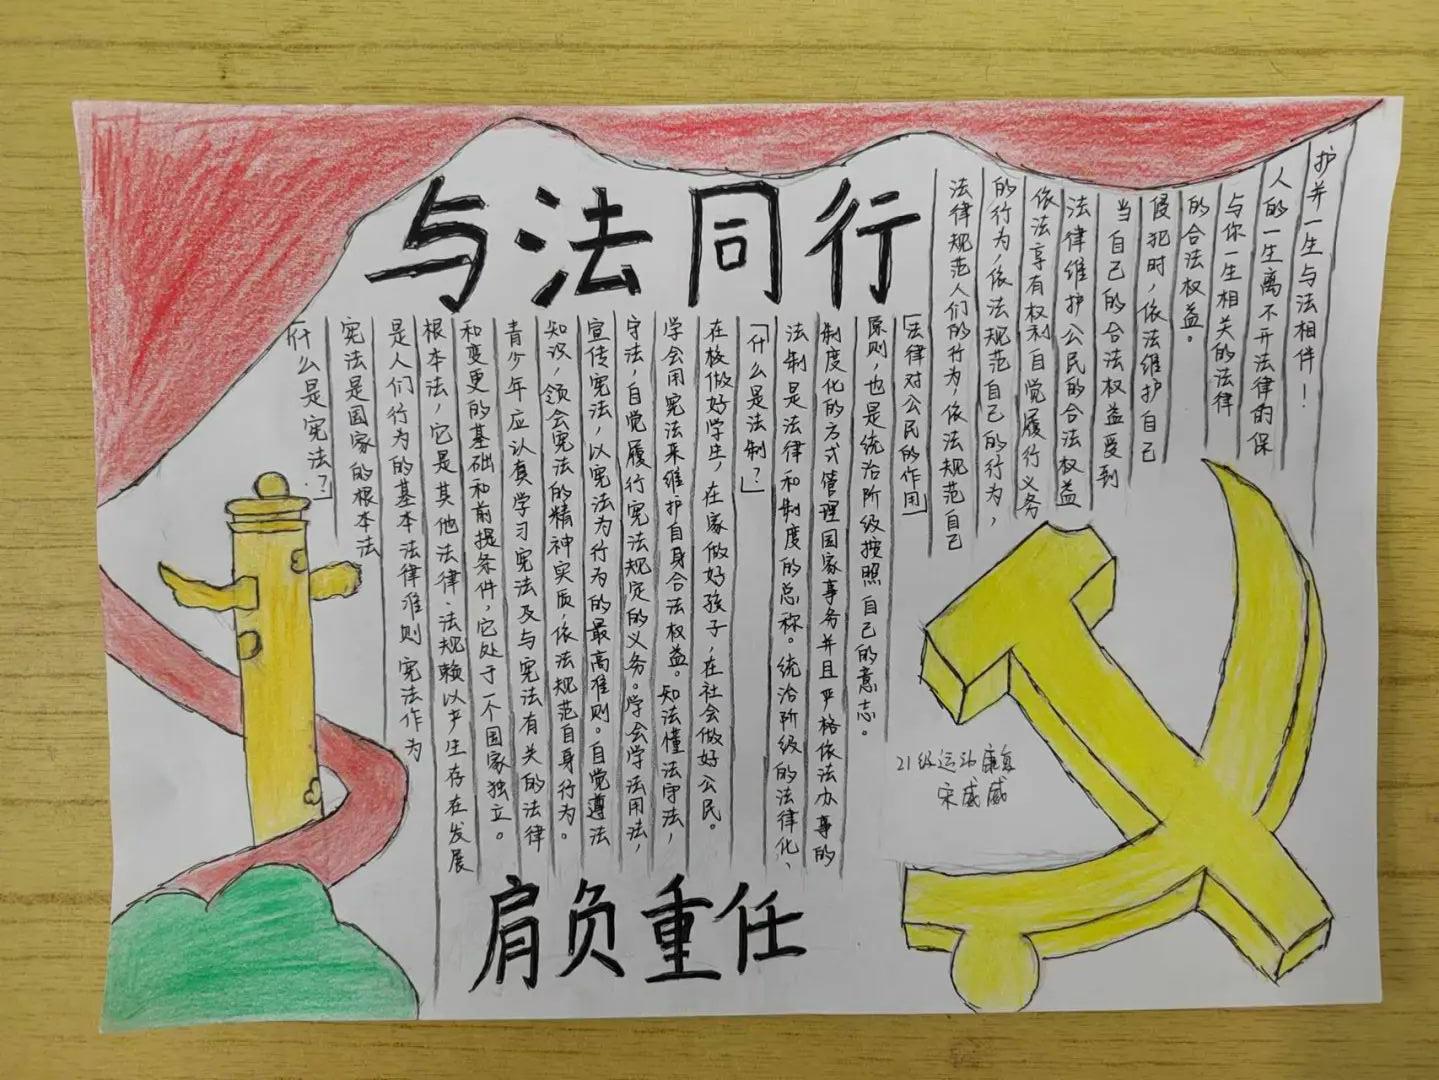 与法同行
「什么是宪法?」
宪法是国家的根本法
是人们行为的基本法律准则 宪法作为
根本法,它是其他法律、法规赖以产生存在发展
和变更的基础和前提条件,它处于一个国家独立。
青少年应认真学习宪法及与宪法有关的法律
知识,领会宪法的精神实质,依法规范自身行为。
宣传宪法,以宪法为行为的最高准则。自觉遵法
守法,自觉履行宪法规定的义务。学会学法用法,
学会用宪法来维护自身合法权益。知法懂法守法,
在校做好学生,在家做好孩子,在社会做好公民。
「什么是法制?」
法制是法律和制度的总称。统治阶级的法律化、
制度化的方式管理国家事务并且严格依法办事的
原则,也是统治阶级按照自己的意志。
「法律对公民的作用」
法律规范人们的行为,依法规范自己
的行为,依法规范自己的行为,
依法享有权利自觉履行义务
法律维护公民的合法权益
当自己的合法权益受到
侵犯时,依法维护自己
的合法权益。
与你一生相关的法律
人的一生离不开法律的保
护并一生与法相伴!
21级运动康复
宋威威
肩负重任